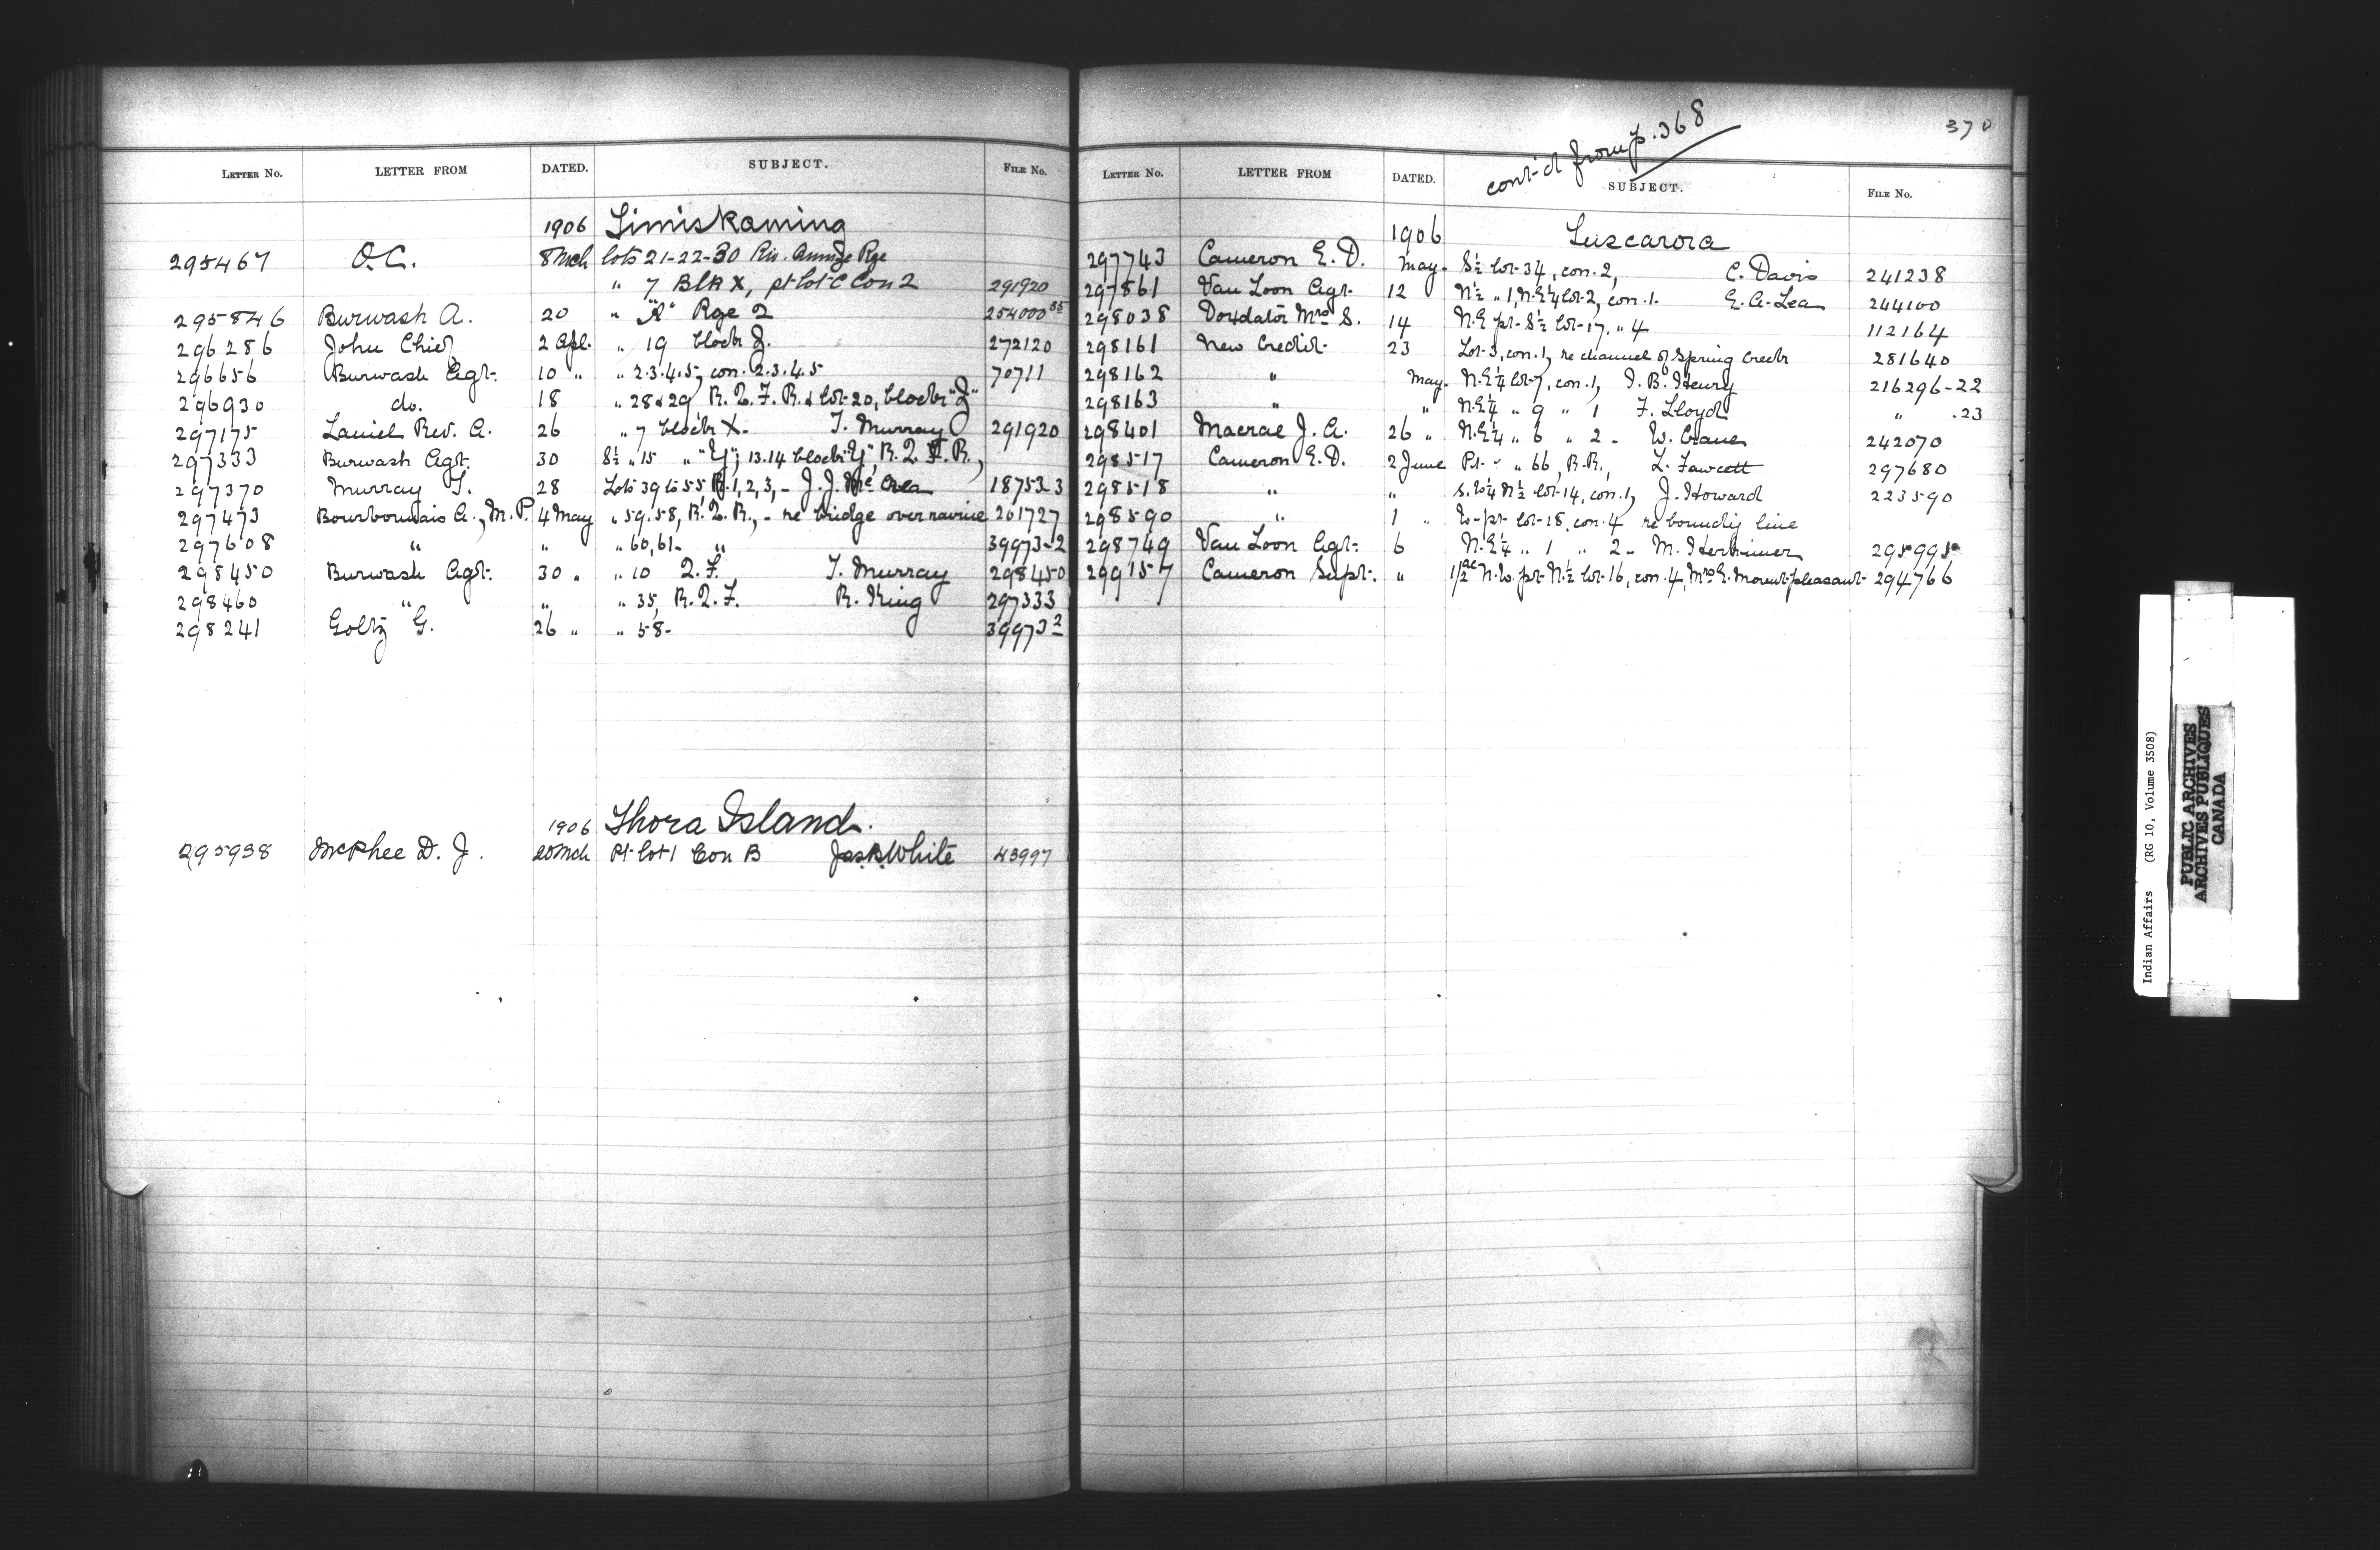 LETTER No. LETTER FROM DATED. SUBJECT. FILE No.
1906 Timiskaming
295467 O.C. 8 Mch lots 21-22-30 Riv. Rge
" 7 Blk X, pt lot C Con 2 291920
295846 Burwash A. 20 " "A" Rge 2 254000 35
296286 John Chief 2 Apl. " 19 block J. 272120
296656 Burwash Agt. 10 " " 2.3.4.5, con. 2.3.4.5 70711
296930 do. 18 " 28 & 29, R.Q.F.R. & lot 20, block "J"
297175 Laniel Rev. A. 26 " 7 block X. T. Murray 291920
297333 Burwash Agt. 30 S½ " 15 " "Y", 13.14 block "Y", R.Q.F.R.,
297370 Murray T. 28 Lots 39 to 55, R. 1, 2, 3, - J.J. McCrea 187523
297473 Bourbonnais A., M.P. 4 May " 59.58, R.Q.R., - re bridge over ravine 201727
297608 " " " 60, 61- " 39973-2
298450 Burwash Agt. 30 " " 10 Q.F. T. Murray 298450
298460 " " " 35, R.Q.F. R. King 297333
298241 Goltz G. 26 " " 58- 39973 2
1906 Thora Island.
295938 McPhee D. J. 20 Mch Pt lot 1 Con B Jas. B. White 43997
370
cont'd from p. 368
LETTER No. LETTER FROM DATED. SUBJECT. FILE No.
1906 Tuscarora
297743 Cameron E. D. May. S½ lot 34, con. 2, C. Davis 241238
297861 Van Loon Agt. 12 N½ " 1, N.E¼ lot 2, con. 1. E. A. Lea 244100
298038 Doxdator Mrs S. 14 N.E pt S½ lot 17, " 4 112164
298161 New Credit 23 Lot 3, con. 1, re channel of Spring Creek 281640
298162 " May. N.E¼ lot 7, con. 1, I. B. Henry 216296-22
298163 " " N.E¼ " 9 " 1 F. Lloyd " .23
298401 Macrae J. A. 26 " N.E¼ " 6 " 2 - W. Crane 242070
298517 Cameron E. D. 2 June Pt. " " 66, R.R., L. Fawcett 297680
298518 " " S.W¼ N½ lot 14, con. 1, J. Howard 223590
298590 " 1 " W-pt lot 18, con. 4 re boundy line
298749 Van Loon Agt. 6 N.E¼ " 1 " 2 - M. Herkimer 295995
299157 Cameron Supt. " 1/2 ac N.W. pt N.½ lot 16, con. 4, Mrs E. Mount-pleasant 294766
Indian Affairs (RG 10, Volume 3508)
PUBLIC ARCHIVES
ARCHIVES PUBLIQUES
CANADA